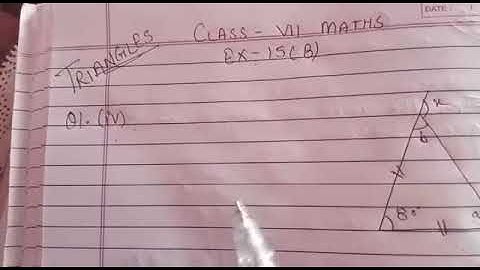 DATE:
CLASS - VII MATHS
TRIANGLES
EX - 15(B)
Q1. (IV)
x
b
80°
a